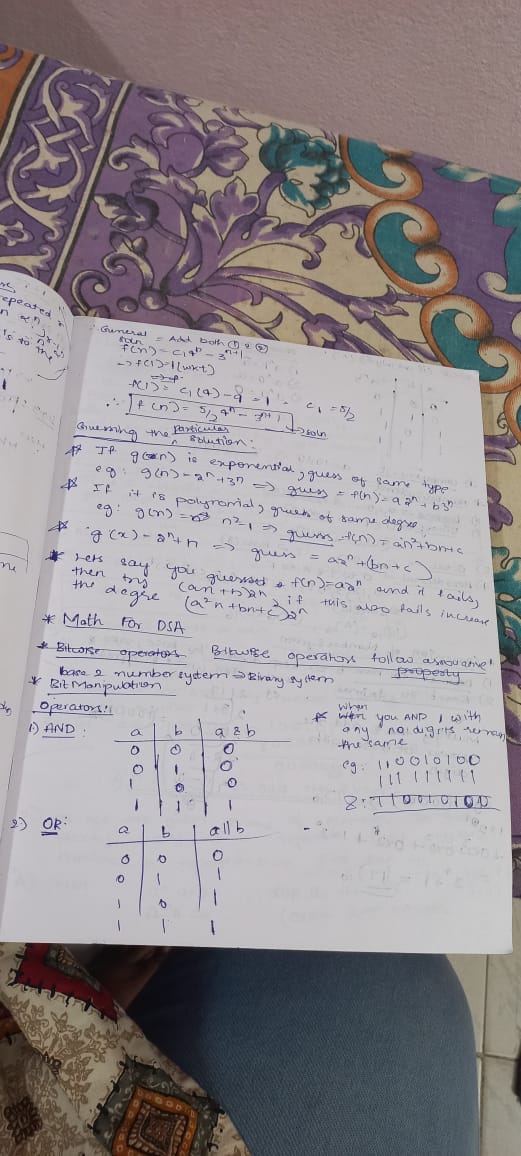 epeated
to the
General soln = Add both ① & ②
f(n) = c₁4ⁿ - 3ⁿ⁺¹
→ f(1) = 1 (wkt)
f(1) = c₁(4) - 9 = 1 c₁ = 5/2
∴ f(n) = 5/2 4ⁿ - 3ⁿ⁺¹ → soln
Guessing the particular solution:
* If g(n) is exponential, guess of same type
eg: g(n) = 2ⁿ + 3ⁿ ⇒ guess = f(n) = a2ⁿ + b3ⁿ
* If it is polynomial, guess of same degree
eg: g(n) = n² - 1 ⇒ guess f(n) = an² + bn + c
* g(x) = 2ⁿ + n ⇒ guess = a2ⁿ + (bn + c)
* Lets say you guessed f(n) = a2ⁿ and it fails,
then try (an + b)2ⁿ, if this also fails increase
the degree (a²n + bn + c)2ⁿ
* Math For DSA
* Bitwise operators Bitwise operators follow associative property
base 2 number system → Binary system
* Bit Manipulation
Operators:
1) AND:
a b a & b
0 0 0
0 1 0
1 0 0
1 1 1
* When you AND 1 with
any no. digits remain
the same
eg: 110010100
111 111111
8: 110010100
2) OR:
a b a || b
0 0 0
0 1 1
1 0 1
1 1 1